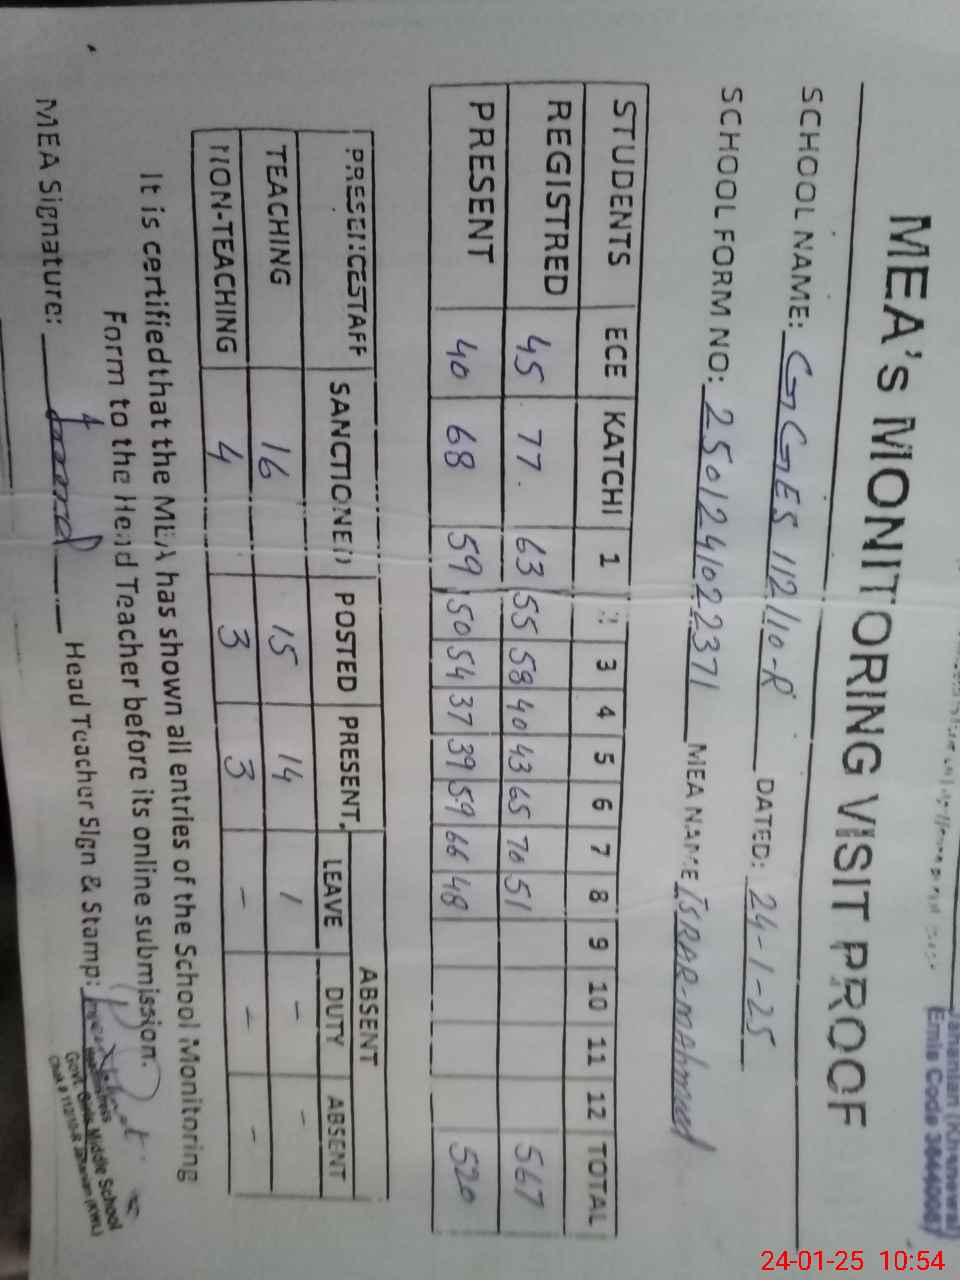 Jahanian (Khanewal)
Emis Code 38440067
MEA's MONITORING VISIT PROOF
SCHOOL NAME: GGES 112/10-R DATED: 24-1-25
SCHOOL FORM NO: 2501241022371 MEA NAME ISRAR-mahmud
STUDENTS ECE KATCHI 1 2 3 4 5 6 7 8 9 10 11 12 TOTAL
REGISTRED 45 77 63 55 58 40 43 65 70 51 567
PRESENT 40 68 59 50 54 37 39 59 66 48 520
PRESENCESTAFF SANCTIONED POSTED PRESENT ABSENT
LEAVE DUTY ABSENT
TEACHING 16 15 14 1 - -
NON-TEACHING 4 3 3 - - -
It is certifiedthat the MEA has shown all entries of the School Monitoring
Form to the Head Teacher before its online submission.
MEA Signature: Head Teacher Sign & Stamp:
Govt. Girls Middle School
Chak # 112/10-R Jahanian (KWL)
24-01-25 10:54